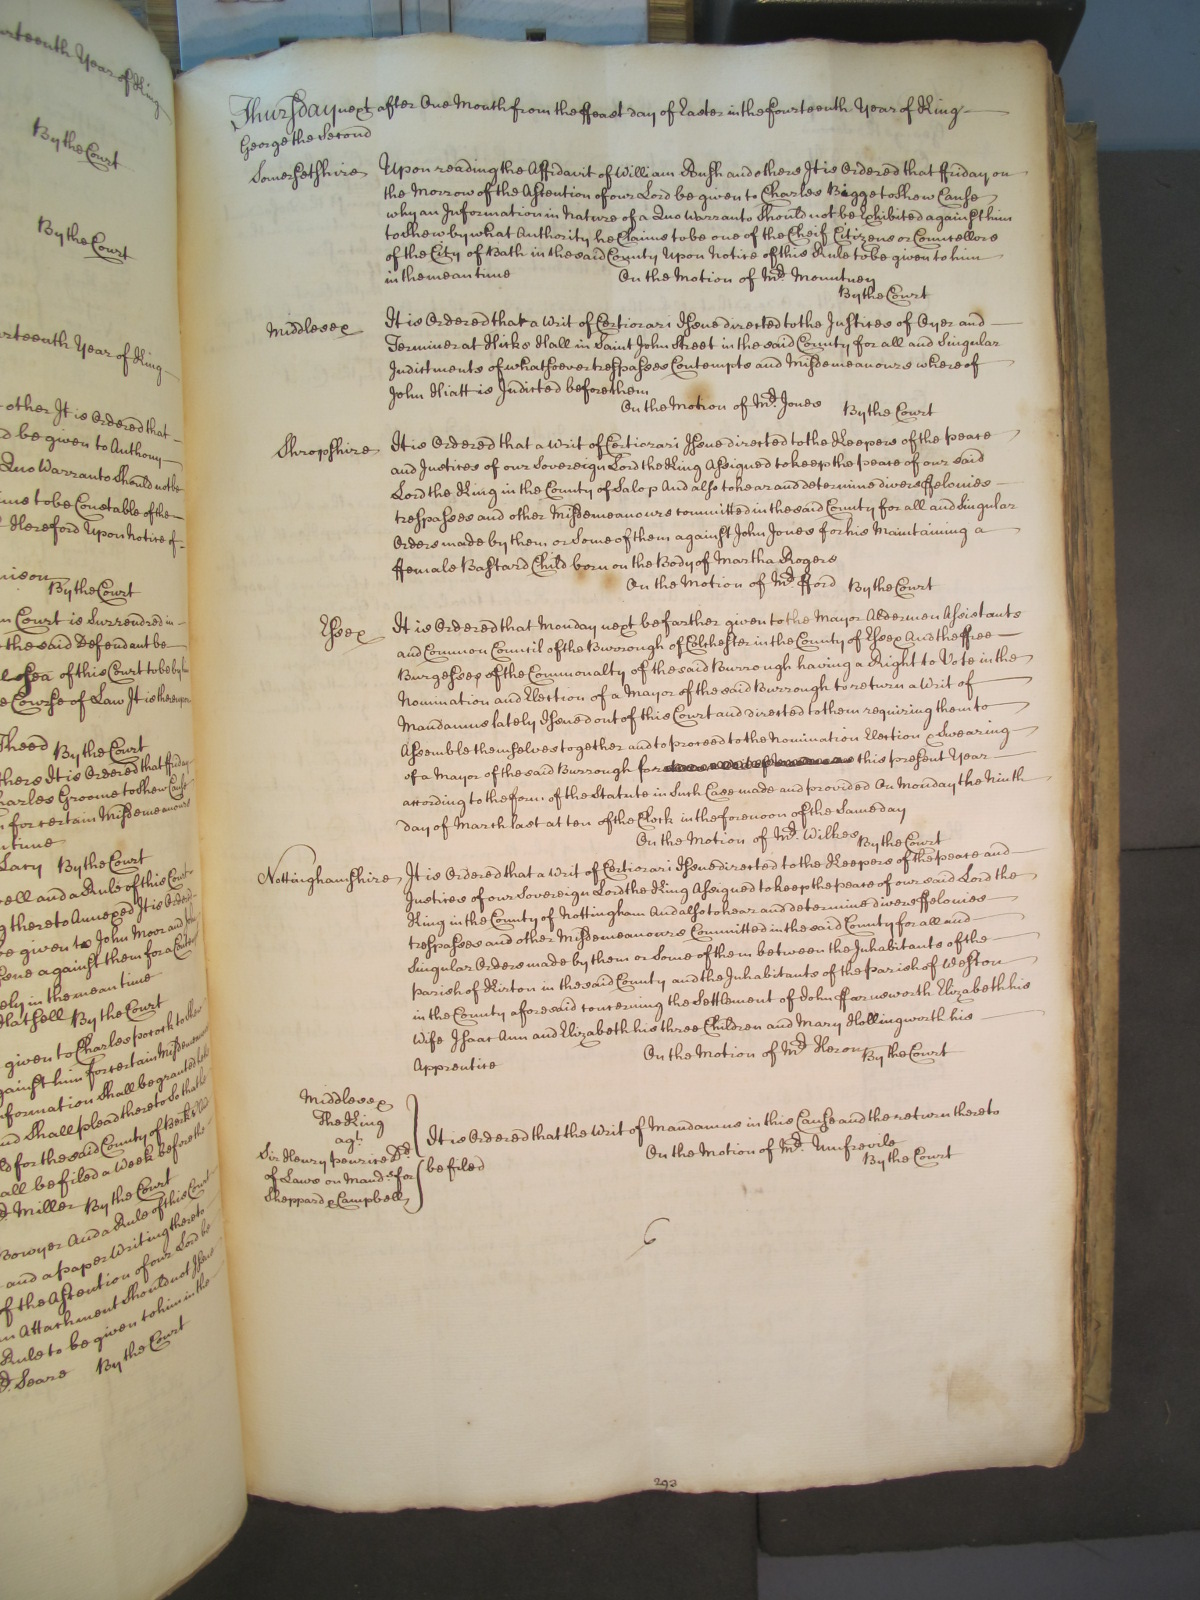 rteenth Year of King
By the Court
By the Court
rteenth Year of King
other It is Ordered that
d be given to Anthony
Quo Warranto Should not be
ime to be Constable of the
Hereford Upon Notice of
By the Court
Court is Surrendred in
the said Defendant be
of this Court to be by him
e Course of Law It is thereupon
Theed By the Court
thers It is Ordered that ffriday
harles Groome to Shew Cause
for certain Misdemeanours
time
Lacy By the Court
ell and a Rule of this Court
thereto Annexed It is Ordered
e given to John Moor and John
ssue against them for a Contempt
ly in the mean time
Hassell By the Court
given to Charles Pocock to Shew
gainst him for certain Misdemeanours
formation Shall be granted
nd Shall plead thereto So that the
ld for the said County of Berks
all be filed a Week before the
Miller By the Court
Bowyer And a Rule of this Court
and a paper Writing thereto
f the Ascention of our Lord be
n Attachment Should not Issue
Rule to be given to him in the
Seare By the Court
Thursday next after One Month from the ffeast day of Easter in the fourteenth Year of King
George the Second
Somersetshire Upon reading the Affidavit of William Rush and others It is Ordered that ffriday on
the Morrow of the Ascention of our Lord be given to Charles Bigge to Shew Cause
why an Information in Nature of a Quo Warranto Should not be Exhibited against him
to Shew by what Authority he Claims to be one of the Cheif Citizens or Councellors
of the City of Bath in the said County Upon Notice of this Rule to be given to him
in the mean time On the Motion of Mr. Mountney
By the Court
Middlesex It is Ordered that a Writ of Certiorari Issue directed to the Justices of Oyer and
Terminer at Hicks Hall in Saint John Street in the said County for all and Singular
Indictments of whatsoever trespasses Contempts and Misdemeanours whereof
John Hiatt is Indicted before them
On the Motion of Mr. Jones By the Court
Shropshire It is Ordered that a Writ of Certiorari Issue directed to the Keepers of the peace
and Justices of our Sovereign Lord the King Assigned to keep the peace of our said
Lord the King in the County of Salop And also to hear and determine divers ffelonies
trespasses and other Misdemeanours committed in the said County for all and Singular
Orders made by them or Some of them against John Jones for his Maintaining a
ffemale Bastard Child born on the Body of Martha Rogers
On the Motion of Mr. fford By the Court
Essex It is Ordered that Monday next be farther given to the Mayor Aldermen Assistants
and Common Council of the Burrough of Colchester in the County of Essex And the ffree
Burgesses of the Commonalty of the said Burrough having a Right to Vote in the
Nomination and Election of a Mayor of the said Burrough to return a Writ of
Mandamus lately Issued out of this Court and directed to them requiring them to
Assemble themselves together and to proceed to the Nomination Election & Swearing
of a Mayor of the said Burrough for this present Year
according to the form of the Statute in Such Case made and provided On Monday the Ninth
day of March last at ten of the Clock in the forenoon of the Same day
On the Motion of Mr. Wilkes By the Court
Nottinghamshire It is Ordered that a Writ of Certiorari Issue directed to the Keepers of the peace and
Justices of our Sovereign Lord the King Assigned to keep the peace of our said Lord the
King in the County of Nottingham And also to hear and determine divers ffelonies
trespasses and other Misdemeanours Committed in the said County for all and
Singular Orders made by them or Some of them between the Inhabitants of the
parish of Kirton in the said County and the Inhabitants of the parish of Weston
in the County aforesaid concerning the Settlement of John ffarnsworth Elizabeth his
Wife Isaac Ann and Elizabeth his three Children and Mary Hollingworth his
Apprentice On the Motion of Mr. Heron By the Court
Middlesex
The King
agt.
Sir Henry penrice Dr.
of Laws on Mand.s for
Sheppard & Campbell
It is Ordered that the Writ of Mandamus in this Cause and the return thereto
be filed On the Motion of Mr. Umfrevile
By the Court
293